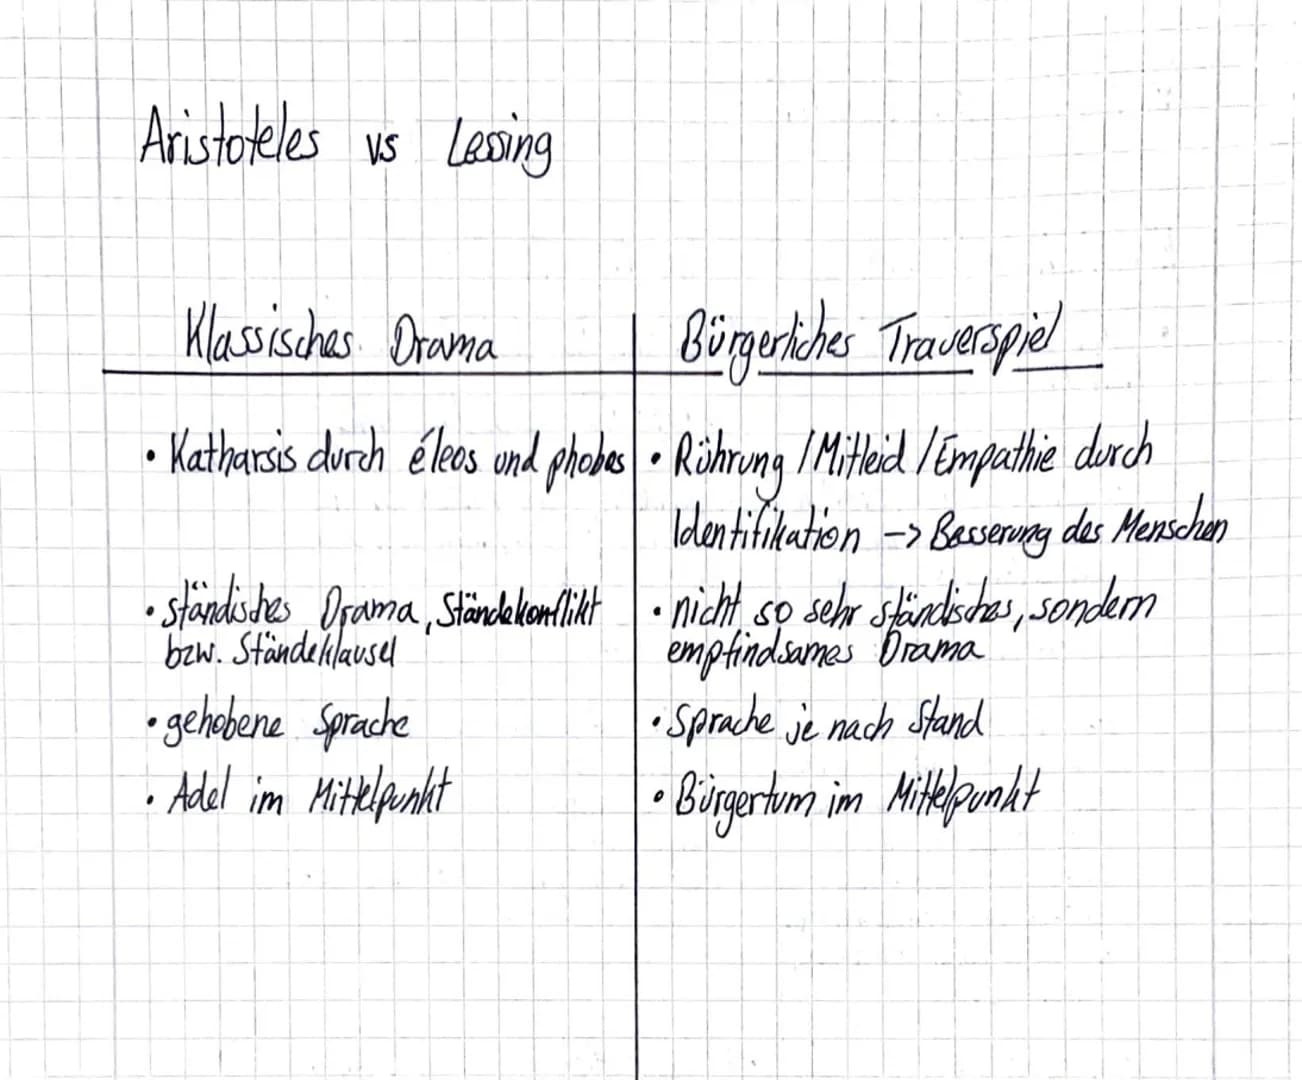 Aristoteles vs Lessing
Klassisches Drama
Bürgerliches Trauerspiel
• Katharsis durch éleos und phobos
• Rührung / Mitleid / Empathie durch
Identifikation -> Besserung des Menschen
• ständisches Drama, Ständekonflikt
bzw. Ständeklausel
• nicht so sehr ständisches, sondern
empfindsames Drama
• gehobene Sprache
• Sprache je nach Stand
• Adel im Mittelpunkt
• Bürgertum im Mittelpunkt